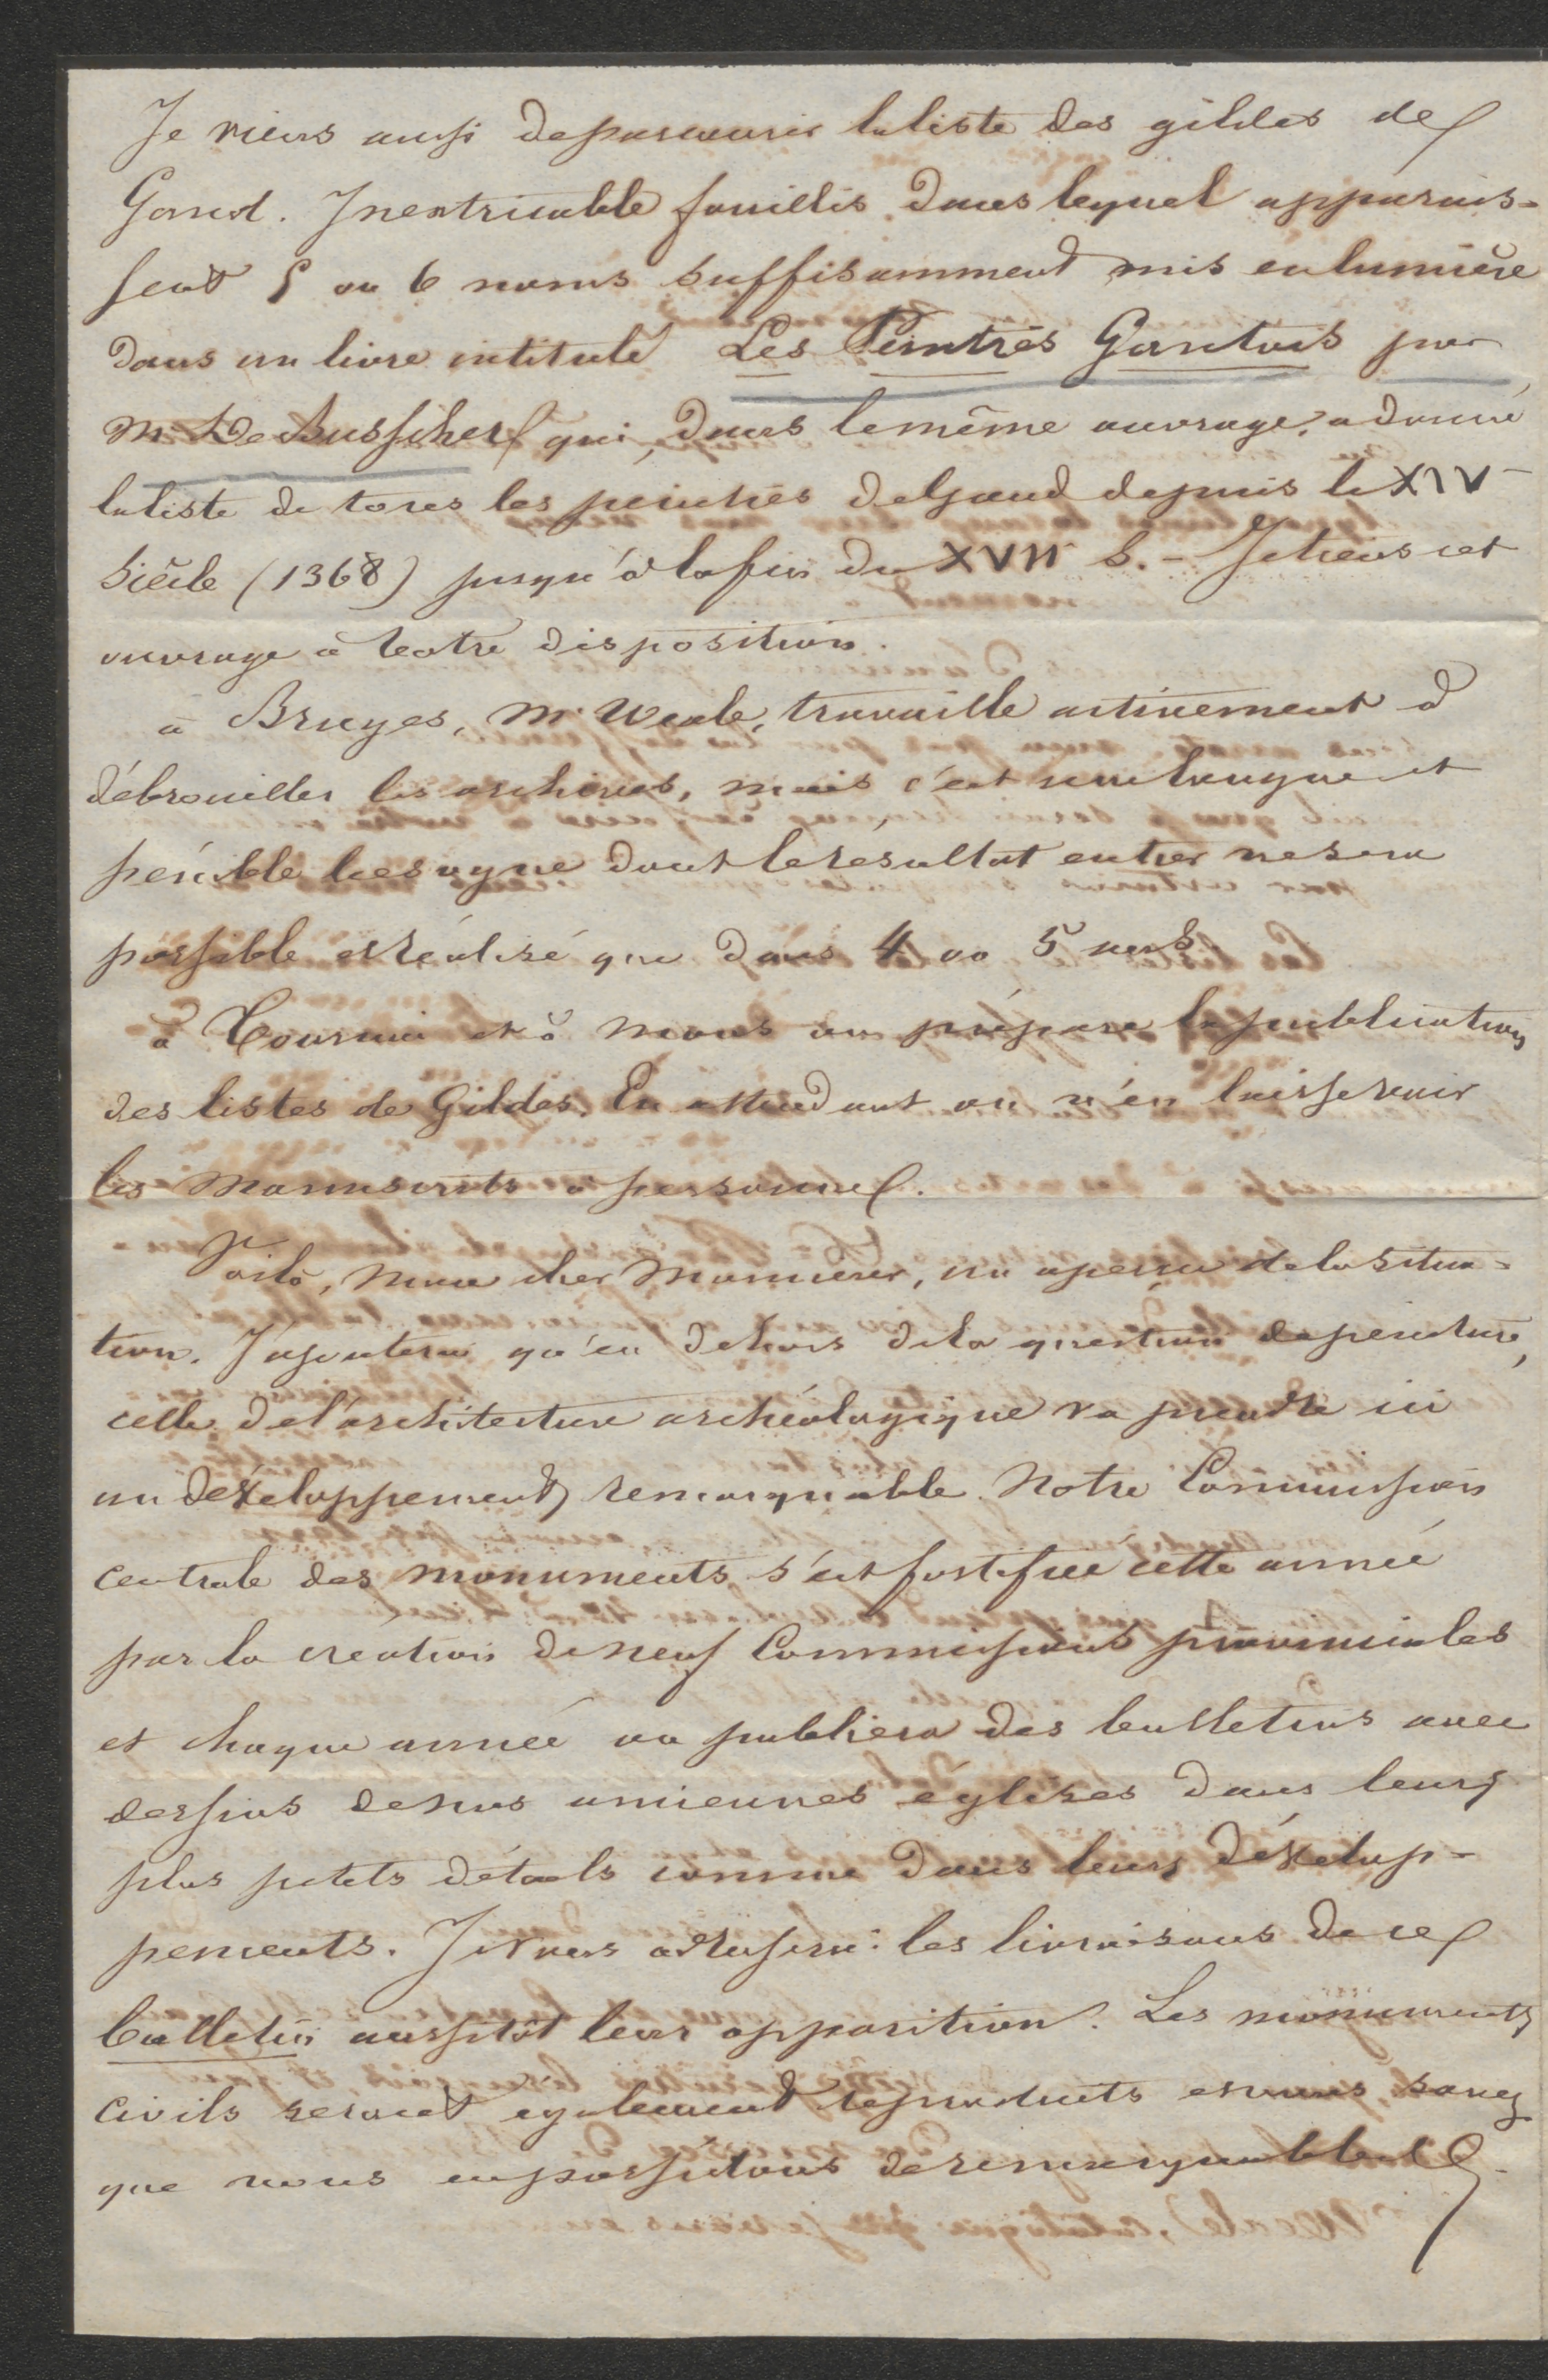 Je viens aussi de parcourir la liste des gildes de
Gand. Inextricable fouillis dans lequel apparais-
sent 5 ou 6 noms suffisamment mis en lumière
dans un livre intitulé Les Peintres Gantois par
M. De Busscher qui, dans le même ouvrage, a donné
la liste de tous les peintres de Gand depuis le XIV
siècle (1368) jusqu'à la fin du XVII s. - Je tiens cet
ouvrage à votre disposition.
à Bruges, M. Weale, travaille activement à
débrouiller les archives, mais c'est une longue et
pénible besogne dont le résultat entier ne sera
possible et réalisé que dans 4 ou 5 ans
à Tournai et à Mons on prépare la publication
des listes de Gildes. En attendant on n'en laisse voir
les manuscrits à personne.
Voilà, mon cher Monsieur, un aperçu de la situa-
tion. J'ajouterai qu'en dehors de la question de peinture,
celle de l'architecture archéologique va prendre ici
un développement remarquable. Notre Commission
centrale des monuments s'est fortifiée cette année
par la création de neuf Commissions provinciales
et chaque année on publiera des bulletins avec
dessins de nos anciennes églises dans leurs
plus petits détails comme dans leurs dévelop-
pements. Je vous adresserai les livraisons de ce
bulletin aussitôt leur apparition. Les monuments
civils seront également reproduits et vous savez
que nous en possédons de remarquables.